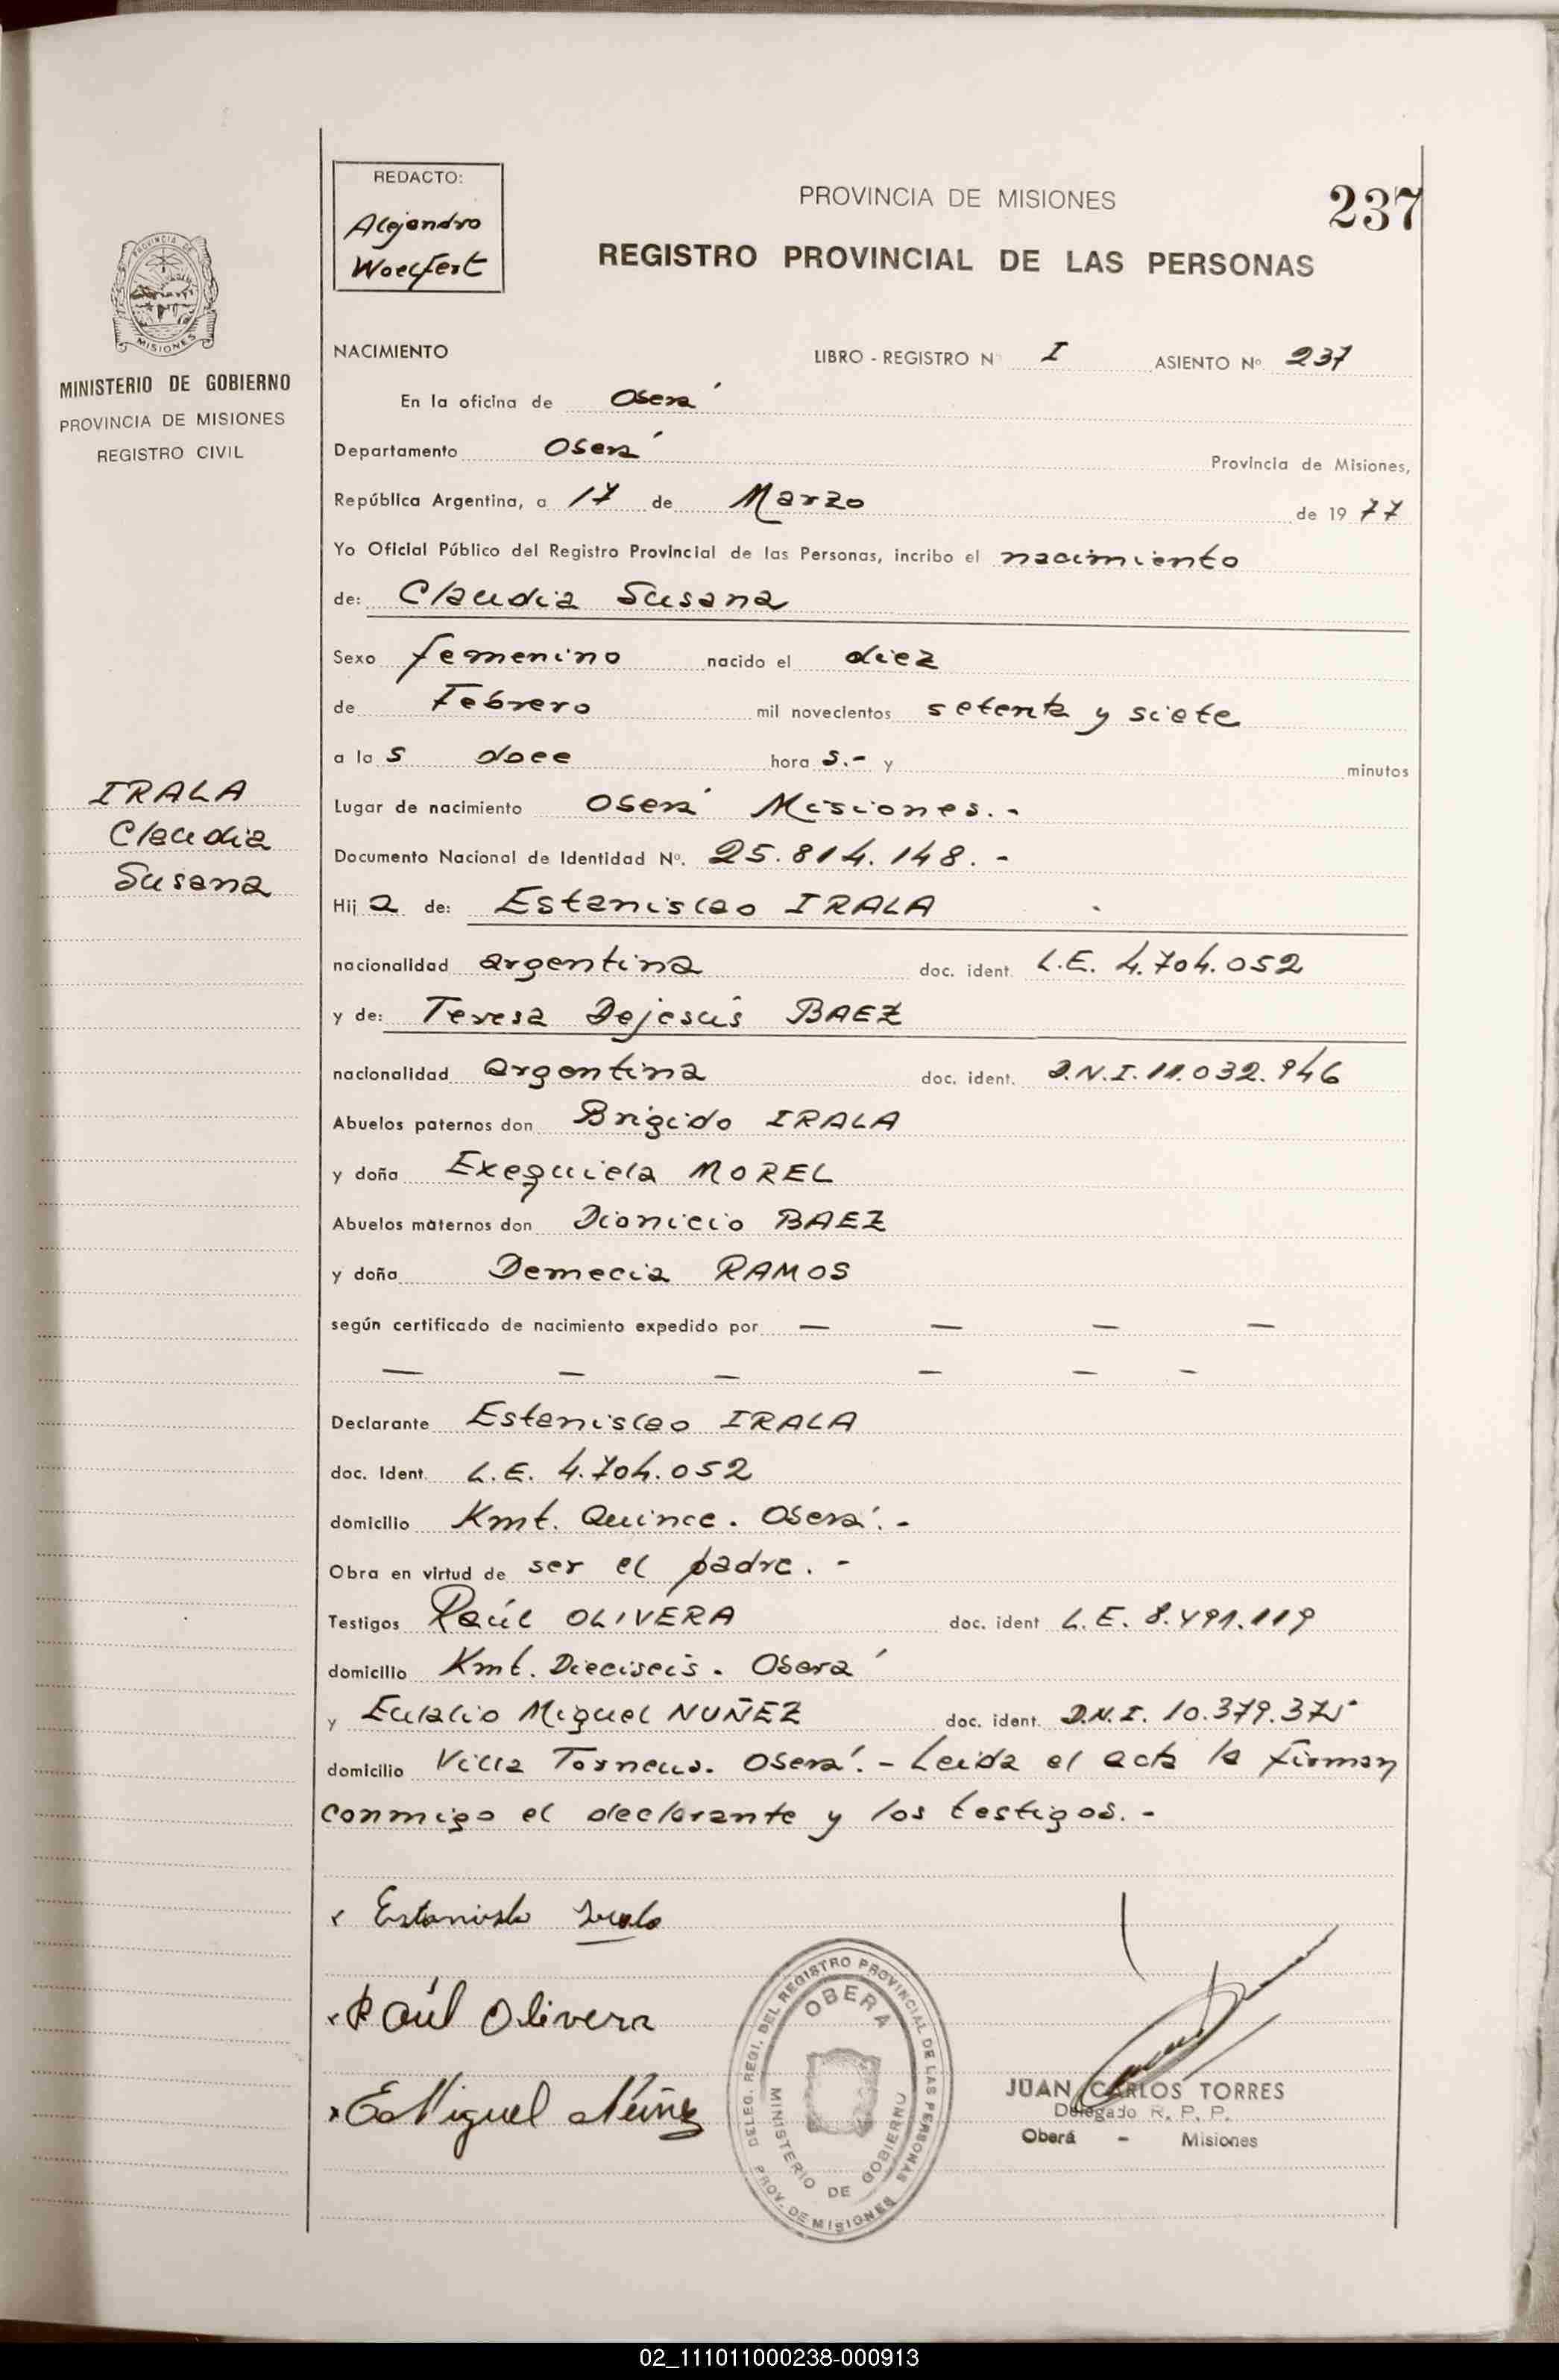 REDACTO:
Alejandro
Woelfert
PROVINCIA DE MISIONES
237
REGISTRO PROVINCIAL DE LAS PERSONAS
PROVINCIA DE
MISIONES
MINISTERIO DE GOBIERNO
PROVINCIA DE MISIONES
REGISTRO CIVIL
IRALA
Claudia
Susana
NACIMIENTO LIBRO - REGISTRO N I ASIENTO Nº 237
En la oficina de Oberá
Departamento Oberá Provincia de Misiones,
República Argentina, a 17 de Marzo de 1977
Yo Oficial Público del Registro Provincial de las Personas, incribo el nacimiento
de: Claudia Susana
Sexo femenino nacido el diez
de Febrero mil novecientos setenta y siete
a las doce horas.- y minutos
Lugar de nacimiento Oberá Misiones.-
Documento Nacional de Identidad Nº. 25.814.148.-
Hija de: Estanislao IRALA
nacionalidad argentina doc. ident. L.E. 4.704.052
y de: Teresa Dejesús BAEZ
nacionalidad argentina doc. ident. D.N.I. 11.032.946
Abuelos paternos don Brigido IRALA
y doña Exequiela MOREL
Abuelos maternos don Dionicio BAEZ
y doña Demecia RAMOS
según certificado de nacimiento expedido por — — — —
— — — — — —
Declarante Estanislao IRALA
doc. Ident. L.E. 4.704.052
domicilio Kmt. Quince. Oberá.-
Obra en virtud de ser el padre.-
Testigos Raúl OLIVERA doc. ident L.E. 8.491.119
domicilio Kmt. Dieciseis. Oberá
y Eulalio Miguel NUÑEZ doc. ident. D.N.I. 10.379.375
domicilio Villa Torneus. Oberá.- Leida el acta la firman
conmigo el declarante y los testigos.-
x Estanislao Irala
x Raúl Olivera
x E Miguel Núñez
DELEG. REGI. DEL REGISTRO PROVINCIAL DE LAS PERSONAS
OBERA
MINISTERIO DE GOBIERNO
PROV. DE MISIONES
JUAN CARLOS TORRES
Delegado R. P. P.
Oberá - Misiones
02_111011000238-000913